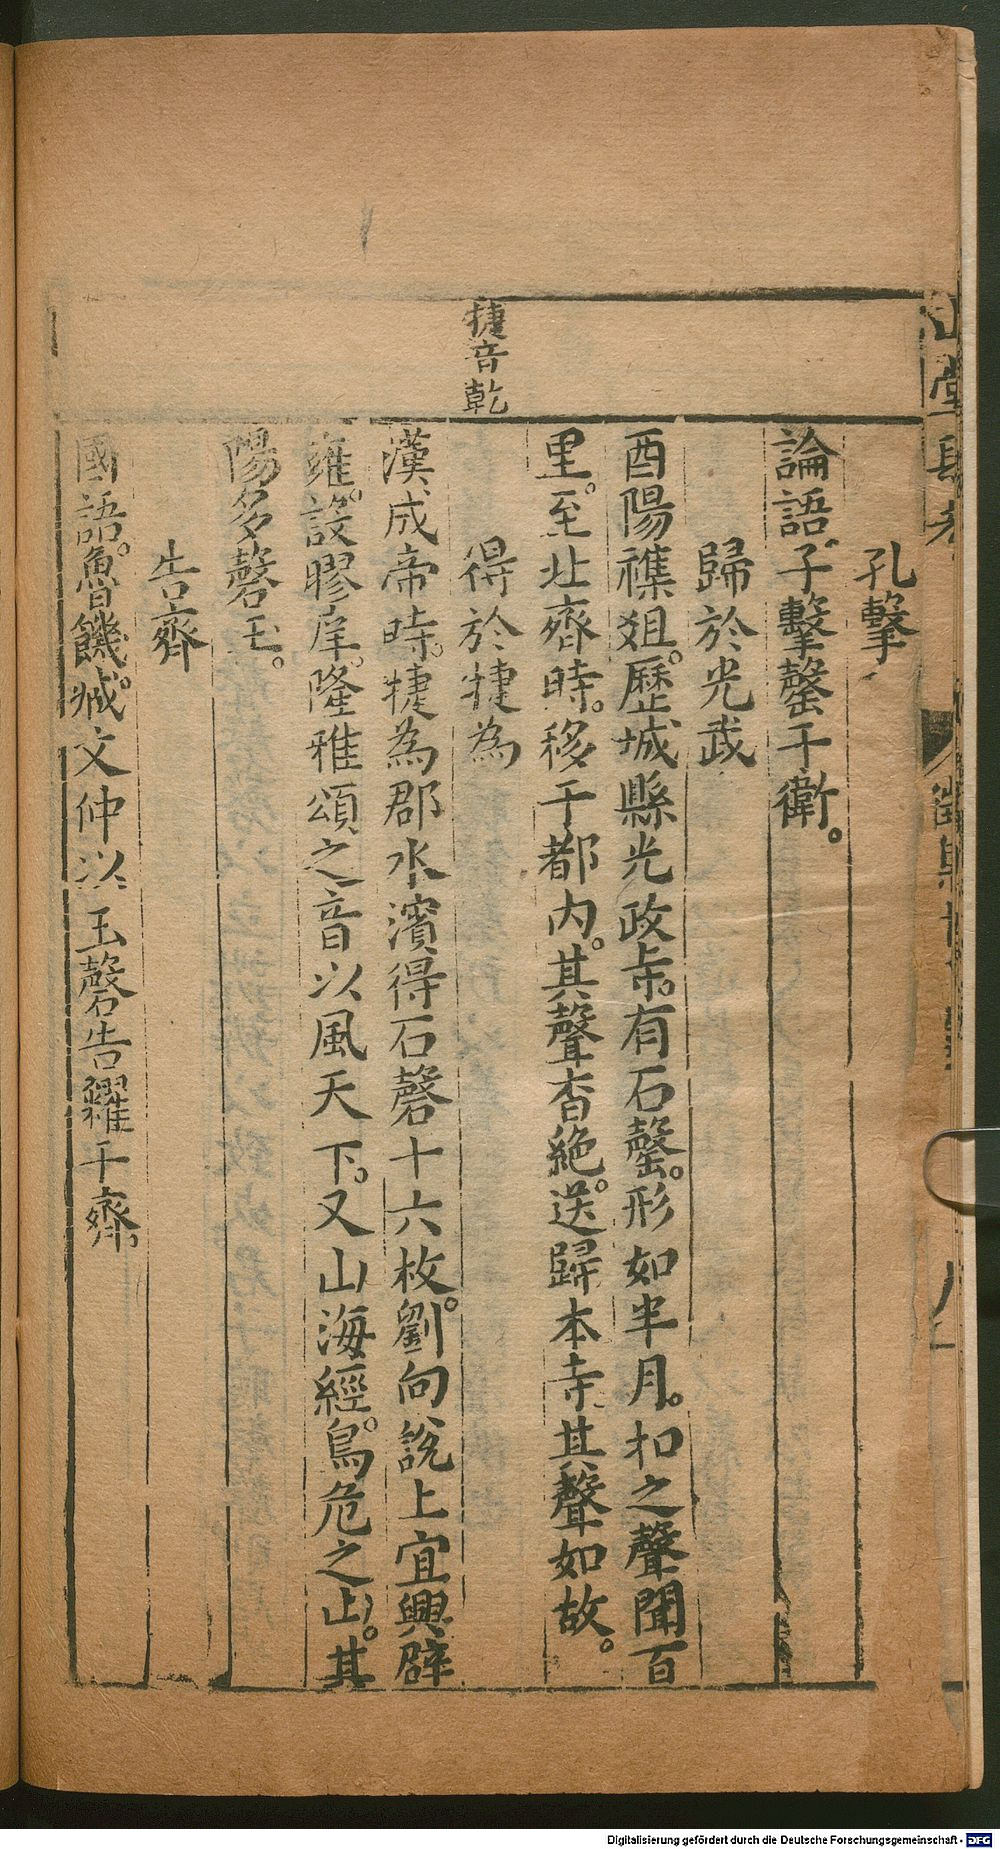 犍音乾
孔擊
論語。子擊罄于衛。
歸於光武
酉陽襍俎。歷城縣光政寺。有石罄。形如半月。扣之聲聞百
里。至北齊時。移于都內。其聲杳絶。送歸本寺其聲如故。
得於犍為
漢成帝時。犍為郡水濱得石磬十六枚。劉向說上宜興辟
雍。設膠庠。隆雅頌之音以風天下。又山海經。鳥危之山。其
陽多磬玉。
告齊
國語。魯饑。臧文仲以玉磬告糴于齊。
山堂肆考
Digitalisierung gefördert durch die Deutsche Forschungsgemeinschaft - DFG